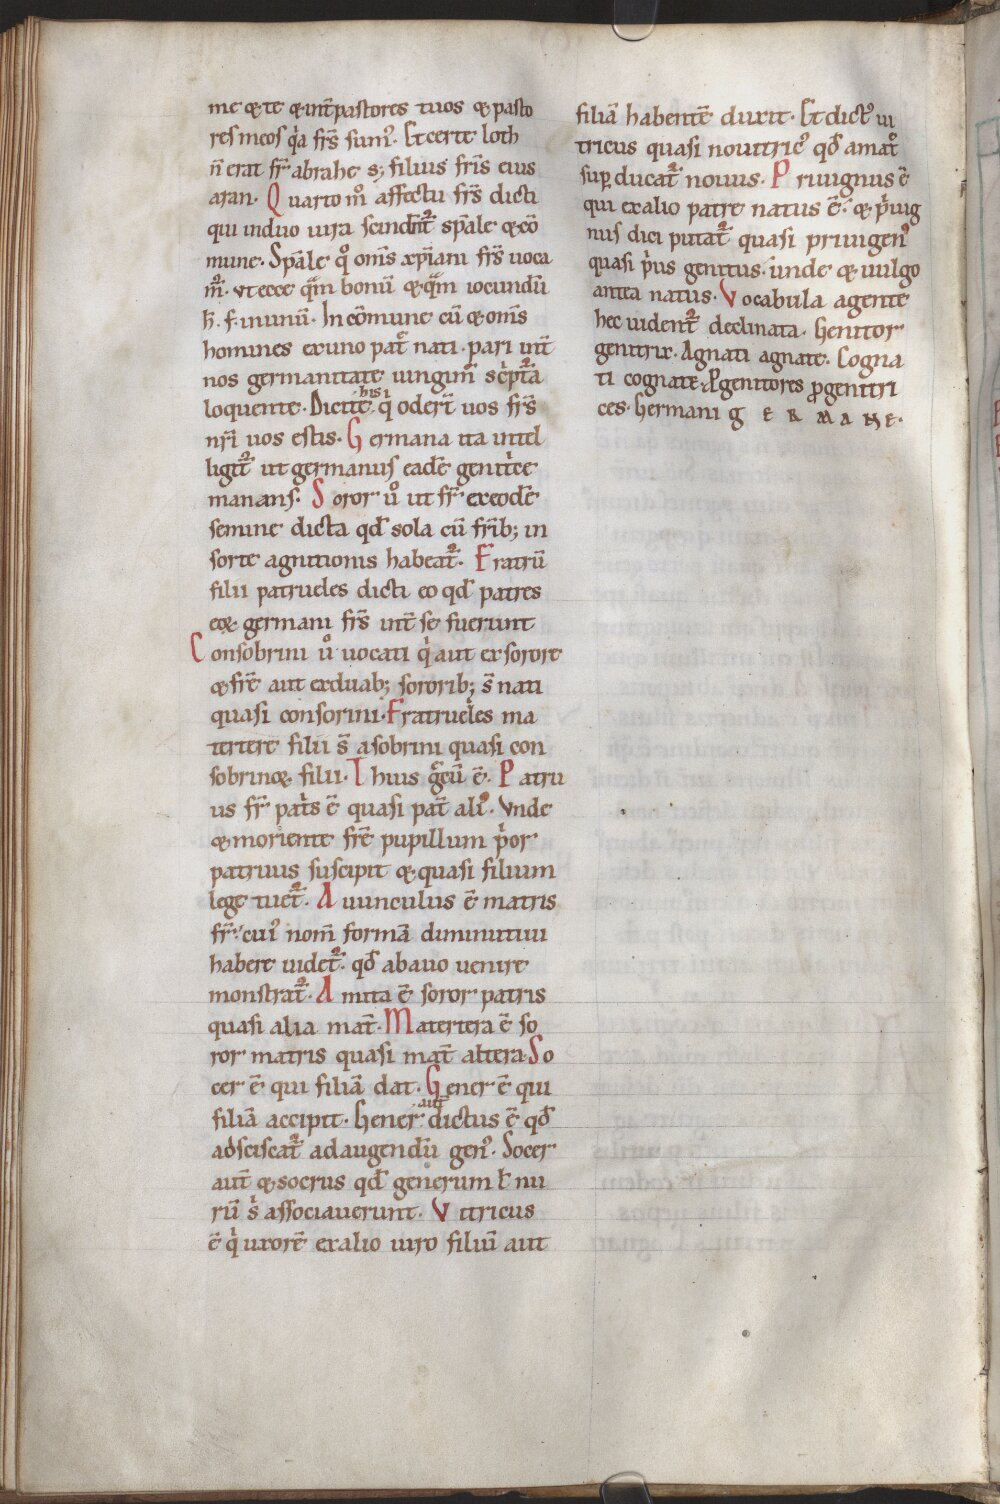 me ⁊ te ⁊ int̄ pastores tuos ⁊ pasto
res meos q̇a frs̄ sumꝰ. Et certe loth
n̄ erat fr̄ abrahe s; filius fris̄ eius
aran. Quarto m̊ affectu frs̄ dicti
qui induo iura scindunt᷑ spāle ⁊ cō
mune. Spāle q̊ oms̄ xp̄iani frs̄ uoca
nt᷑. vt ecce qm̄ bonū ⁊ qm̄ iocundū
h̄. f. in unū. In cōmune cū ⁊ oms̄
homines ex uno pat̄ nati. pari int̄
nos germanitate iungim᷑ scptᷓa
loquente. Dicite his q̇ odert̄ uos frs̄
nr̄i uos estis. Germana ita intel
ligit᷑ ut germanus eadē genitͥce
manans. Soror ů ut fr̄ ex eodē
semine dicta qd̄ sola cū frīb; in
sorte agnitionis habeat᷑. Fratrū
filii patrueles dicti eo qd̄ patres
eoꝝ germani frs̄ int̄ se fuerunt
Consobrini ů uocati q̇ aut ex sorore
⁊ fr̄e aut ex duab; sororib; s̄ nati
quasi consorini. Fratrueles ma
tertere filii s̄ a sobrini quasi con
sobrinoꝝ filii. T hius gͤcū ē. Patru
us fr̄ patͥs ē quasi pat̄ aliꝰ. Vnde
⁊ moriente fr̄e pupillum pͥor
patruus suscipit ⁊ quasi filium
lege tuet᷑. Auunculus ē matris
fr̄. cuiꝰ nom̄ formā diminutiui
habere uidet᷑. qd̄ ab auo uenire
monstrat᷑. Amita ē soror patris
quasi alia mat̄. Matertera ē so
ror matris quasi mat̄ altera. So
cer ē qui filiā dat. Gener ē qui
filiā accipit. Gener aut̄ dictus ē qd̄
adsciscat᷑ ad augendū genꝰ. Socer
aut̄ ⁊ socrus qd̄ generum ł nu
rū ṡ associauerunt. Vitricus
ē q̇ uxorē ex alio uiro filiū aut
filiā habentē duxit. Et dictꝰ ui
tricus quasi nouitricꝰ qd̄ a mat̊
sup̱ducat᷑ nouus. Priuignus ē
qui ex alio patre natus ē. ⁊ pͥuig
nus dici putat᷑ quasi priuigenꝰ
quasi pͥus genitus. unde ⁊ uulgo
antea natus. Vocabula a gente
hec uident᷑ declinata. Genitor
genitrix. Agnati agnate. Cogna
ti cognate. Ꝓgenitores ꝓgenitri
ces. Germani GERMANE.